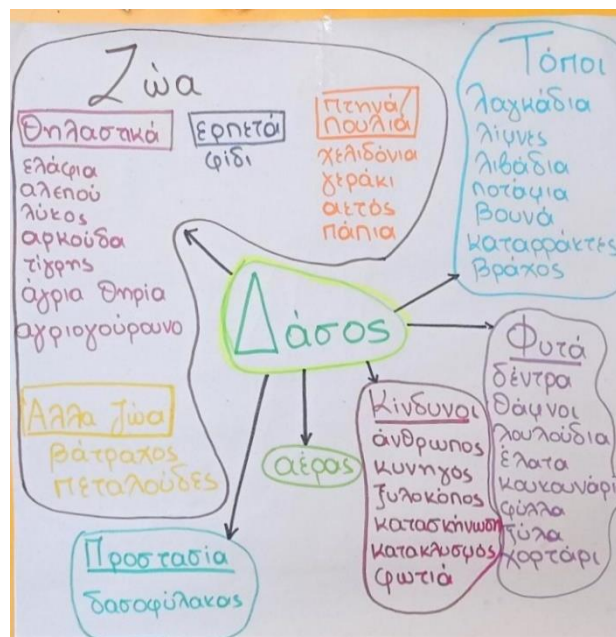 Ζώα
Θηλαστικά
ελάφια
αλεπού
λύκος
αρκούδα
τίγρης
άγρια θηρία
αγριογούρουνο
ερπετά
φίδι
Πτηνά/
Πουλιά
χελιδόνια
γεράκι
αετός
πάπια
Άλλα ζώα
βάτραχος
πεταλούδες
Τόποι
λαγκάδια
λίμνες
λιβάδια
ποτάμια
βουνά
καταρράκτες
βράχος
Δάσος
Φυτά
δέντρα
θάμνοι
λουλούδια
έλατα
κουκουνάρι
φύλλα
ξύλα
χορτάρι
Κίνδυνοι
άνθρωπος
κυνηγός
ξυλοκόπος
κατασκήνωση
κατακλυσμός
φωτιά
αέρας
Προστασία
δασοφύλακας